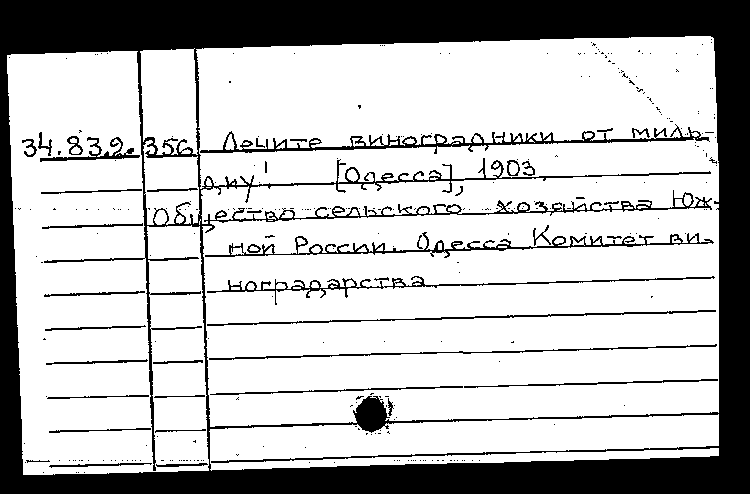 34.83.2.356 Лечите виноградники от миль-
диу! [Одесса], 1903.
Общество сельского хозяйства Юж-
ной России. Одесса Комитет ви-
ноградарства